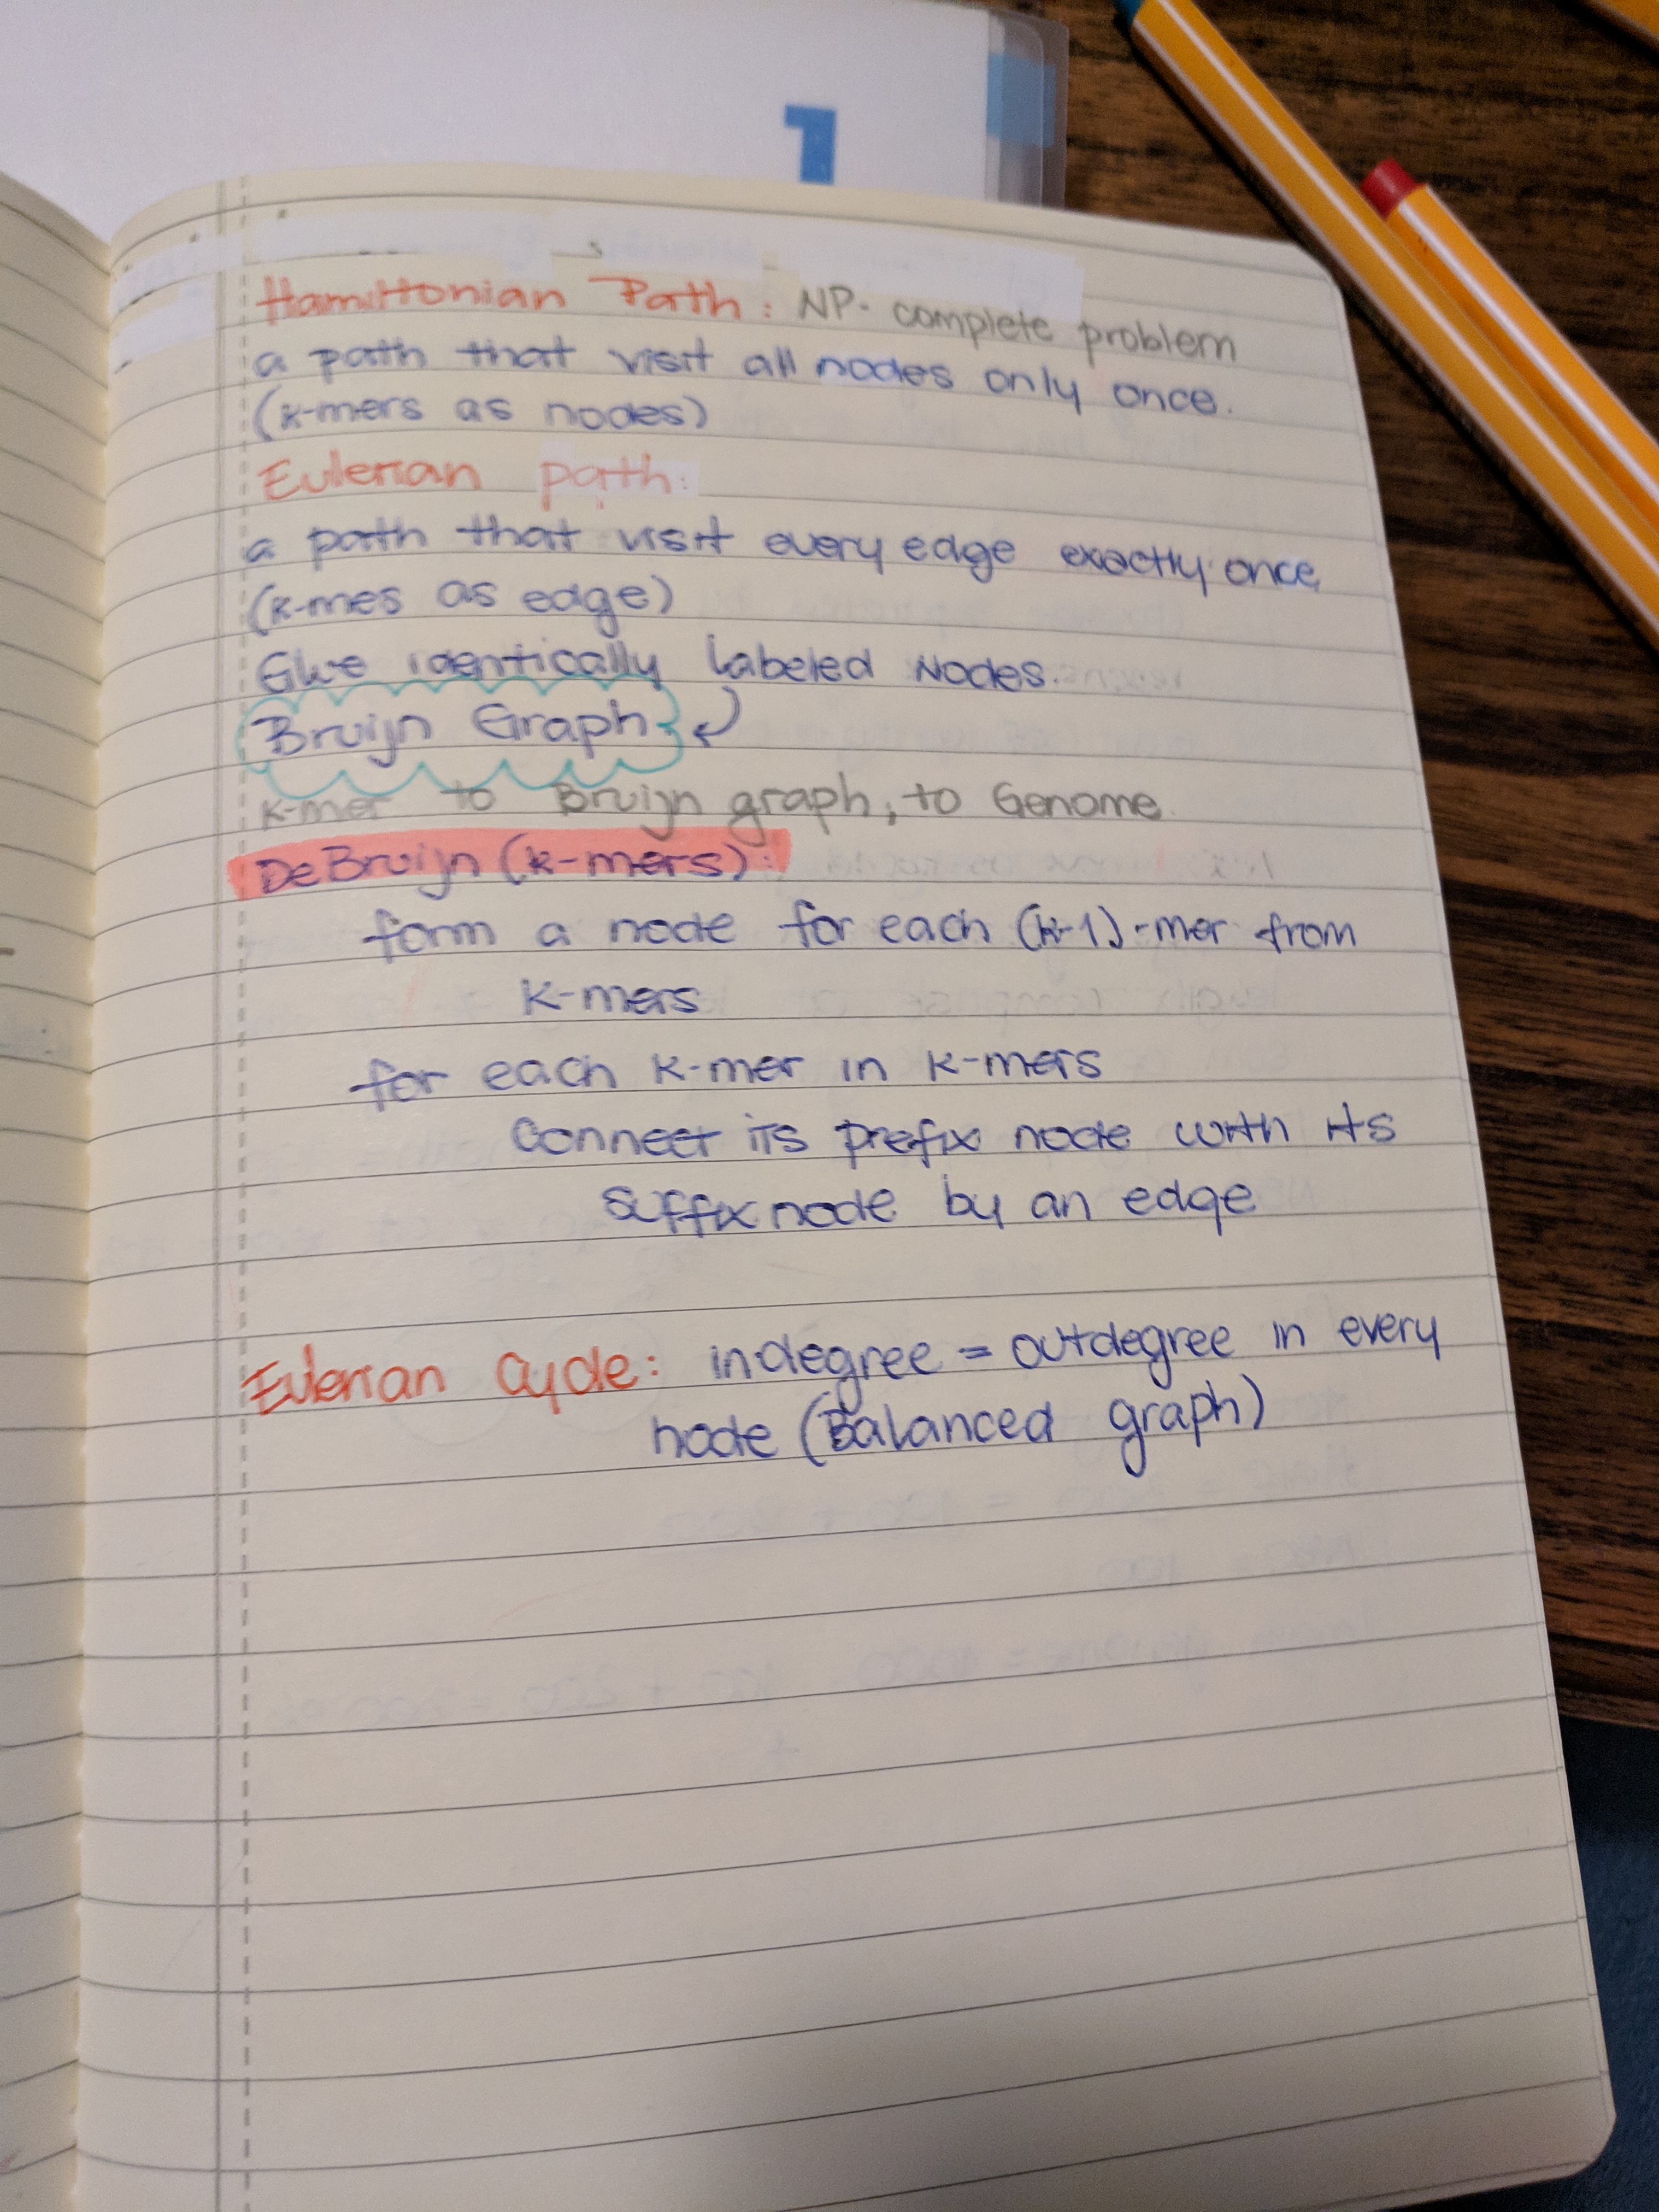 1
Hamiltonian Path: NP-complete problem
a path that visit all nodes only once.
(k-mers as nodes)
Eulerian path:
a path that visit every edge exactly once
(k-mes as edge)
Glue identically labeled Nodes.
Bruijn Graph
k-mer to Bruijn graph, to Genome.
DeBruijn (k-mers):
form a node for each (k-1)-mer from
k-mers
for each k-mer in k-mers
Connect its prefix node with its
suffix node by an edge
Eulerian Cycle: indegree = outdegree in every
node (Balanced graph)